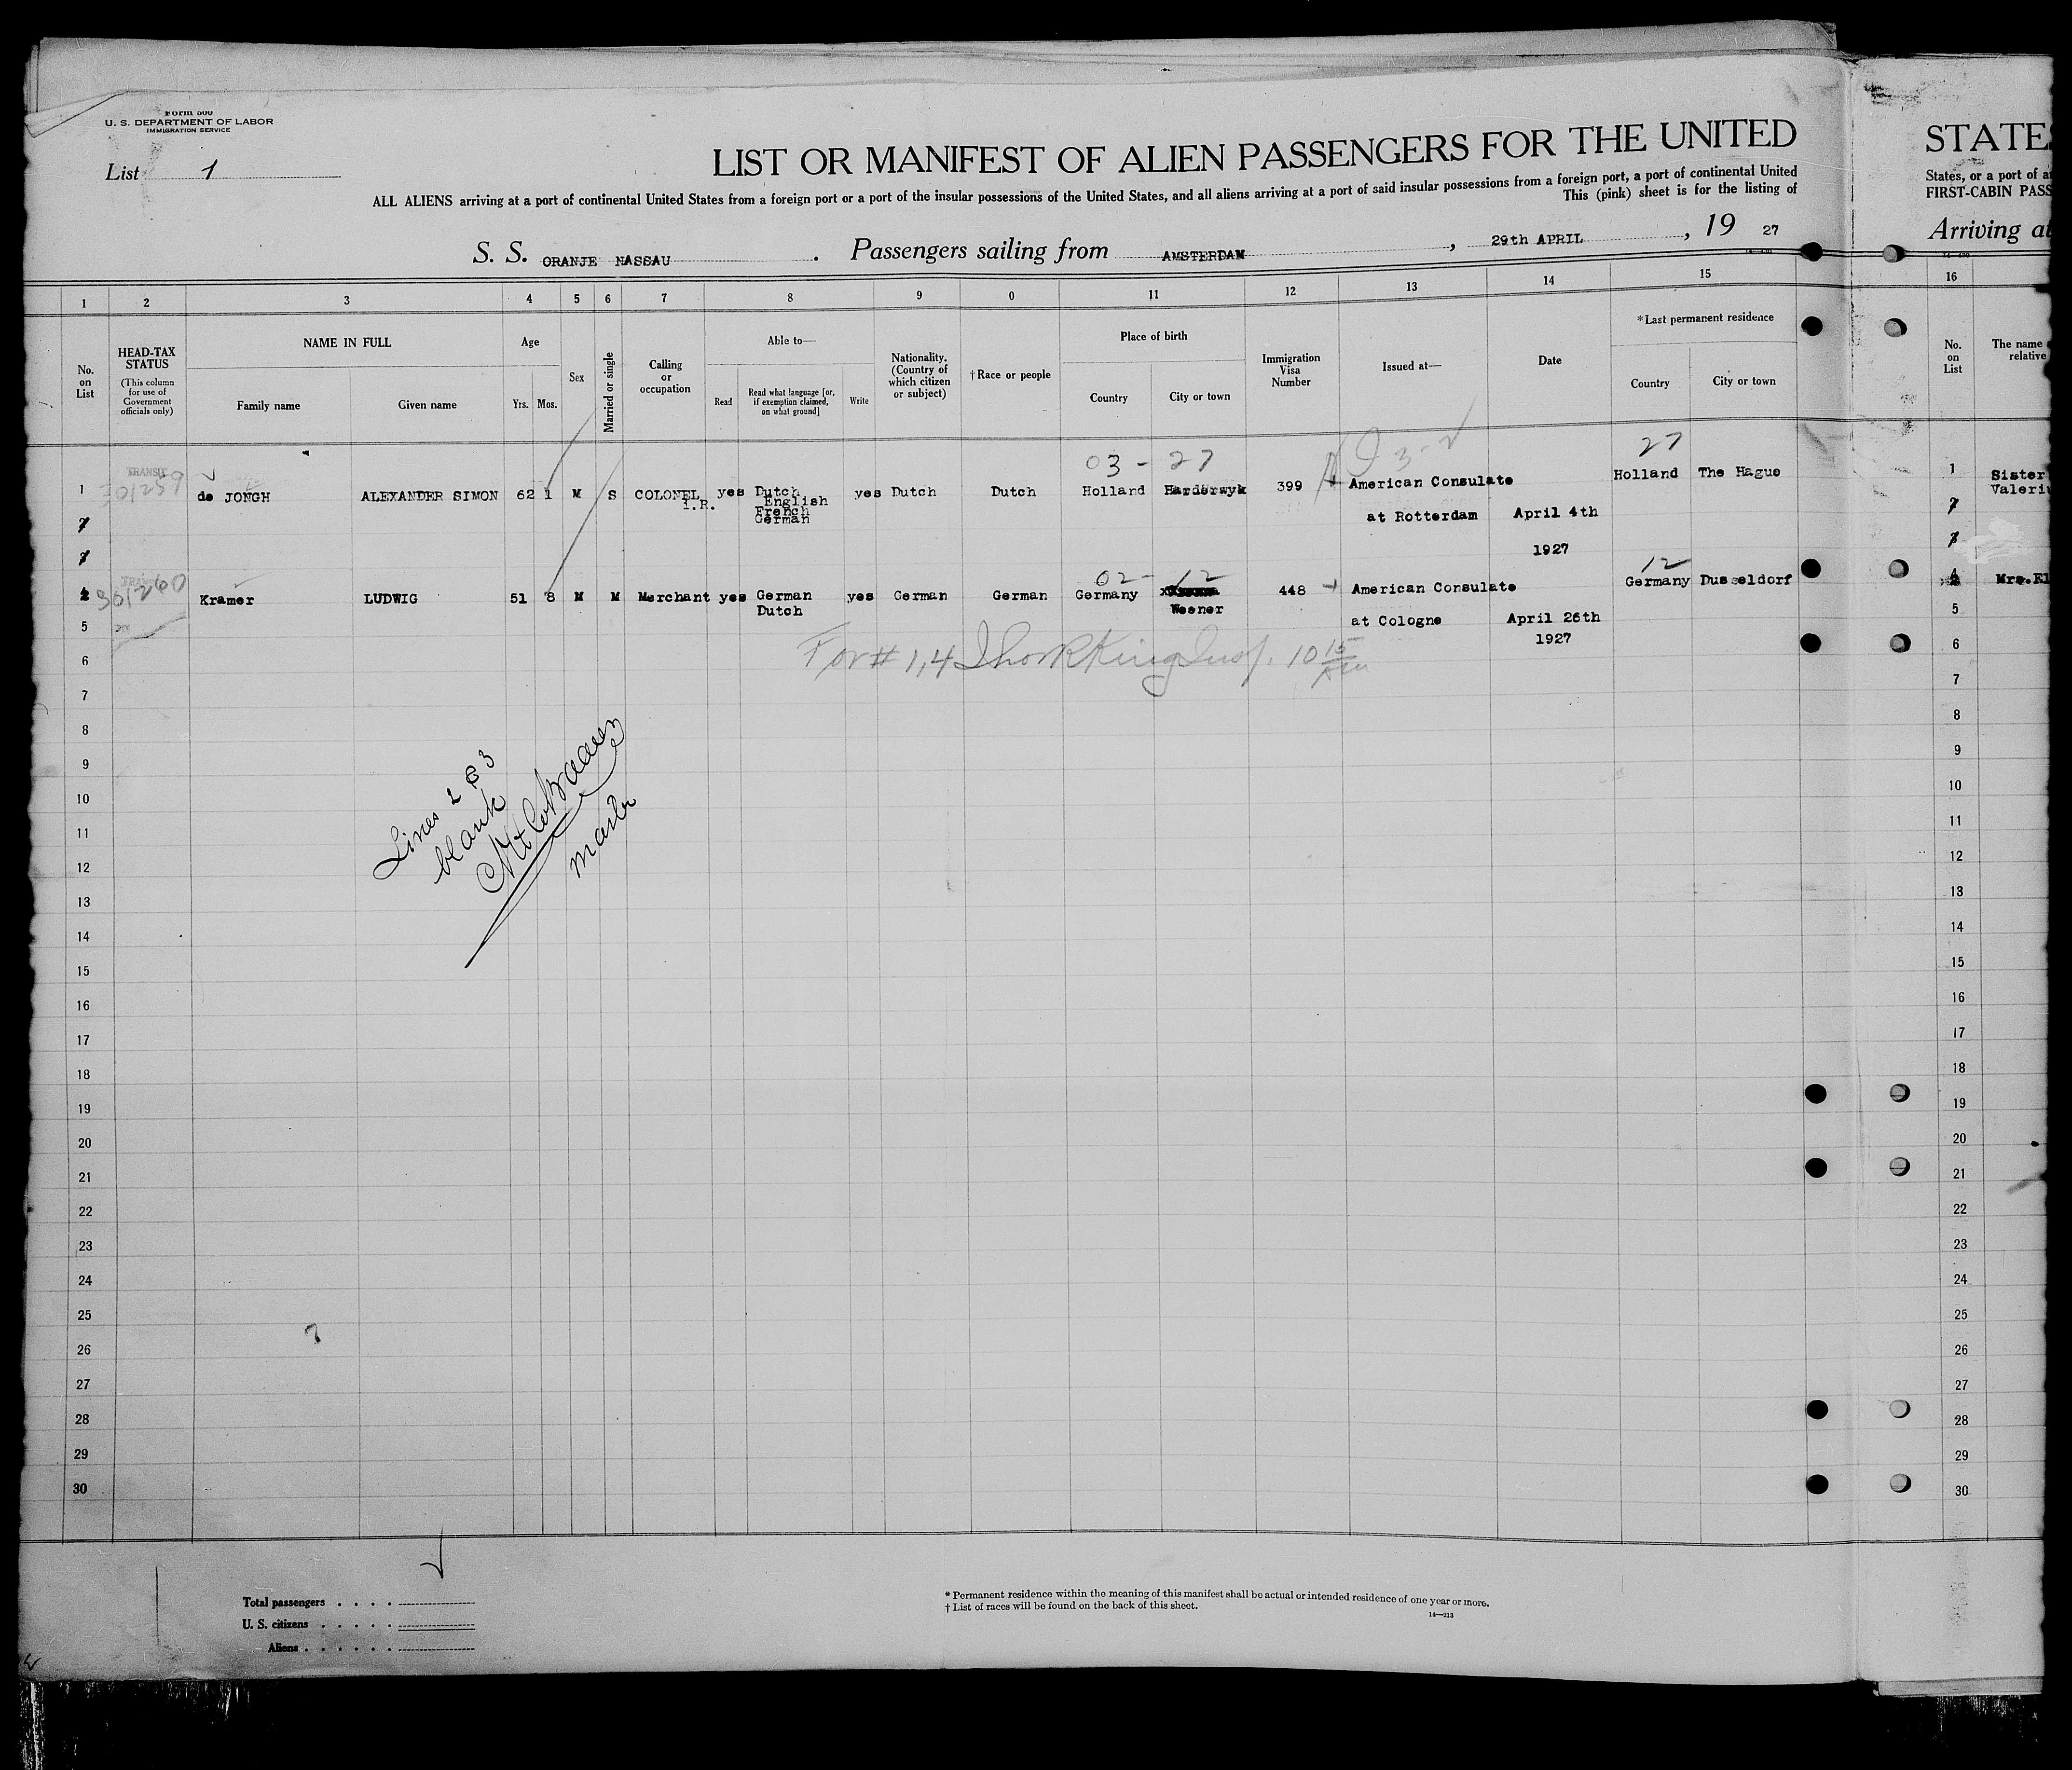 Form 500
U. S. DEPARTMENT OF LABOR
IMMIGRATION SERVICE
List 1
LIST OR MANIFEST OF ALIEN PASSENGERS FOR THE UNITED
ALL ALIENS arriving at a port of continental United States from a foreign port or a port of the insular possessions of the United States, and all aliens arriving at a port of said insular possessions from a foreign port, a port of continental United
This (pink) sheet is for the listing of
S. S. ORANJE NASSAU . Passengers sailing from AMSTERDAM , 29th APRIL , 19 27
1 2 3 4 5 6 7 8 9 0 11 12 13 14 15
No. on List
HEAD-TAX STATUS
(This column for use of Government officials only)
NAME IN FULL
Family name
Given name
Age
Yrs. Mos.
Sex
Married or single
Calling or occupation
Able to—
Read
Read what language [or, if exemption claimed, on what ground]
Write
Nationality. (Country of which citizen or subject)
†Race or people
Place of birth
Country
City or town
Immigration Visa Number
Issued at—
Date
*Last permanent residence
Country
City or town
03 - 27
27
TRANSIT
1 de JONGH ALEXANDER SIMON 62 1 M S COLONEL yes Dutch yes Dutch Dutch Holland Harderwyk 399 American Consulate Holland The Hague
I.R. English
French
German
at Rotterdam April 4th
1927
02 - 12
12
301240
4 Kramer LUDWIG 51 8 M M Merchant yes German yes German German Germany 448 American Consulate Germany Dusseldorf
Dutch Weener
at Cologne April 26th
1927
5
For # 1,4 King Insp. 10 15
6
7
8
9
10
11
12
13
14
15
16
17
18
19
20
21
22
23
24
25
26
27
28
29
30
Lines 2 & 3
blank
Total passengers
U. S. citizens
Aliens
* Permanent residence within the meaning of this manifest shall be actual or intended residence of one year or more.
† List of races will be found on the back of this sheet.
14—213
STATES
States, or a port of a
FIRST-CABIN PASS
Arriving at
16
No. on List
The name
relative
1 Sister
Valeri
4 Mrs. El
5
6
7
8
9
10
11
12
13
14
15
16
17
18
19
20
21
22
23
24
25
26
27
28
29
30